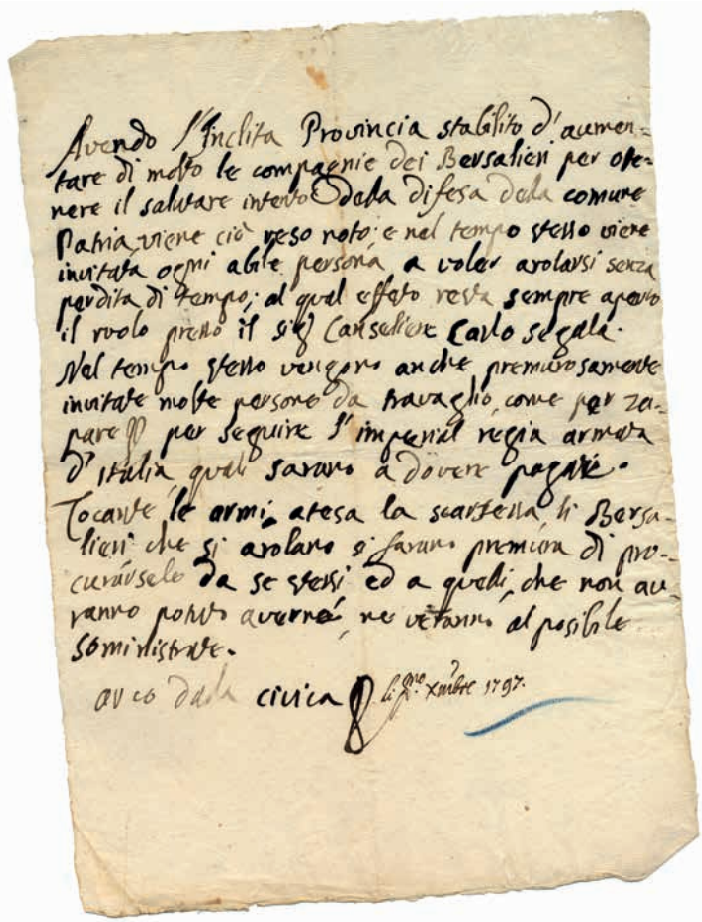 Avendo l'Inclita Provincia stabilito d'aumen=
tare di molto le compagnie dei Bersalieri per ote=
nere il salutare intento della difesa della comune
Patria, viene ciò reso noto; e nel tempo stesso viene
invitata ogni abile persona a voler arolarsi senza
perdita di tempo; al qual effeto resta sempre aperto
il ruolo presso il sig Canseliere Carlo Segala.
Nel tempo stesso vengono anche premurosamente
invitate molte persone da travaglio, come per za=
pare per seguire l'imperial regia armata
d'Italia, quali sarano a dovere pagate.
Tocante le armi, atesa la scarsezza, li Bersa=
lieri che si arolano si farano premura di pro=
curarsele da se stessi, ed a quelli, che non au=
ranno potuto averne, ne veranno al posibile
soministrate.
arco dalla civica li Xmbre 1797.